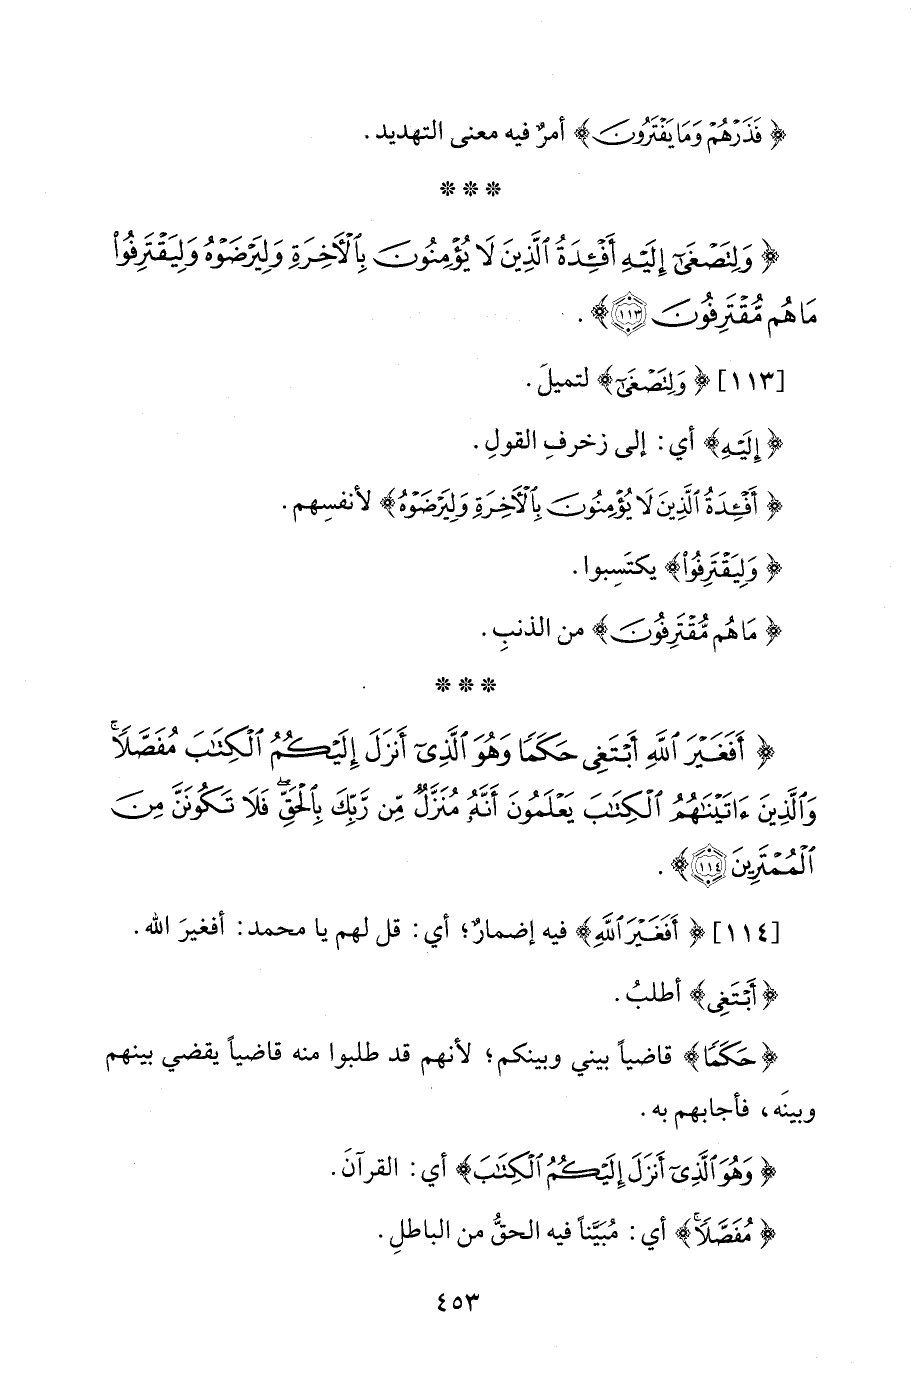 ﴿فَذَرْهُمْ وَمَا يَفْتَرُونَ﴾ أمرٌ فيه معنى التهديد.
* * *
﴿وَلِتَصْغَىٰٓ إِلَيْهِ أَفْـِٔدَةُ ٱلَّذِينَ لَا يُؤْمِنُونَ بِٱلْأَخِرَةِ وَلِيَرْضَوْهُ وَلِيَقْتَرِفُوا۟
مَا هُم مُّقْتَرِفُونَ ١١٣﴾.
[١١٣] ﴿وَلِتَصْغَىٰٓ﴾ لتميلَ.
﴿إِلَيْهِ﴾ أي: إلى زخرفِ القولِ.
﴿أَفْـِٔدَةُ ٱلَّذِينَ لَا يُؤْمِنُونَ بِٱلْأَخِرَةِ وَلِيَرْضَوْهُ﴾ لأنفسِهم.
﴿وَلِيَقْتَرِفُوا۟﴾ يكتَسِبوا.
﴿مَا هُم مُّقْتَرِفُونَ﴾ من الذنبِ.
* * *
﴿أَفَغَيْرَ ٱللَّهِ أَبْتَغِى حَكَمًا وَهُوَ ٱلَّذِىٓ أَنزَلَ إِلَيْكُمُ ٱلْكِتَٰبَ مُفَصَّلًا ۚ
وَٱلَّذِينَ ءَاتَيْنَٰهُمُ ٱلْكِتَٰبَ يَعْلَمُونَ أَنَّهُۥ مُنَزَّلٌ مِّن رَّبِّكَ بِٱلْحَقِّ ۖ فَلَا تَكُونَنَّ مِنَ
ٱلْمُمْتَرِينَ ١١٤﴾.
[١١٤] ﴿أَفَغَيْرَ ٱللَّهِ﴾ فيه إضمارٌ؛ أي: قل لهم يا محمد: أفغيرَ الله.
﴿أَبْتَغِى﴾ أطلبُ.
﴿حَكَمًا﴾ قاضياً بيني وبينكم؛ لأنهم قد طلبوا منه قاضياً يقضي بينهم
وبينَه، فأجابهم به.
﴿وَهُوَ ٱلَّذِىٓ أَنزَلَ إِلَيْكُمُ ٱلْكِتَٰبَ﴾ أي: القرآنَ.
﴿مُفَصَّلًا ۚ﴾ أي: مُبَيَّناً فيه الحقُّ من الباطلِ.
٤٥٣